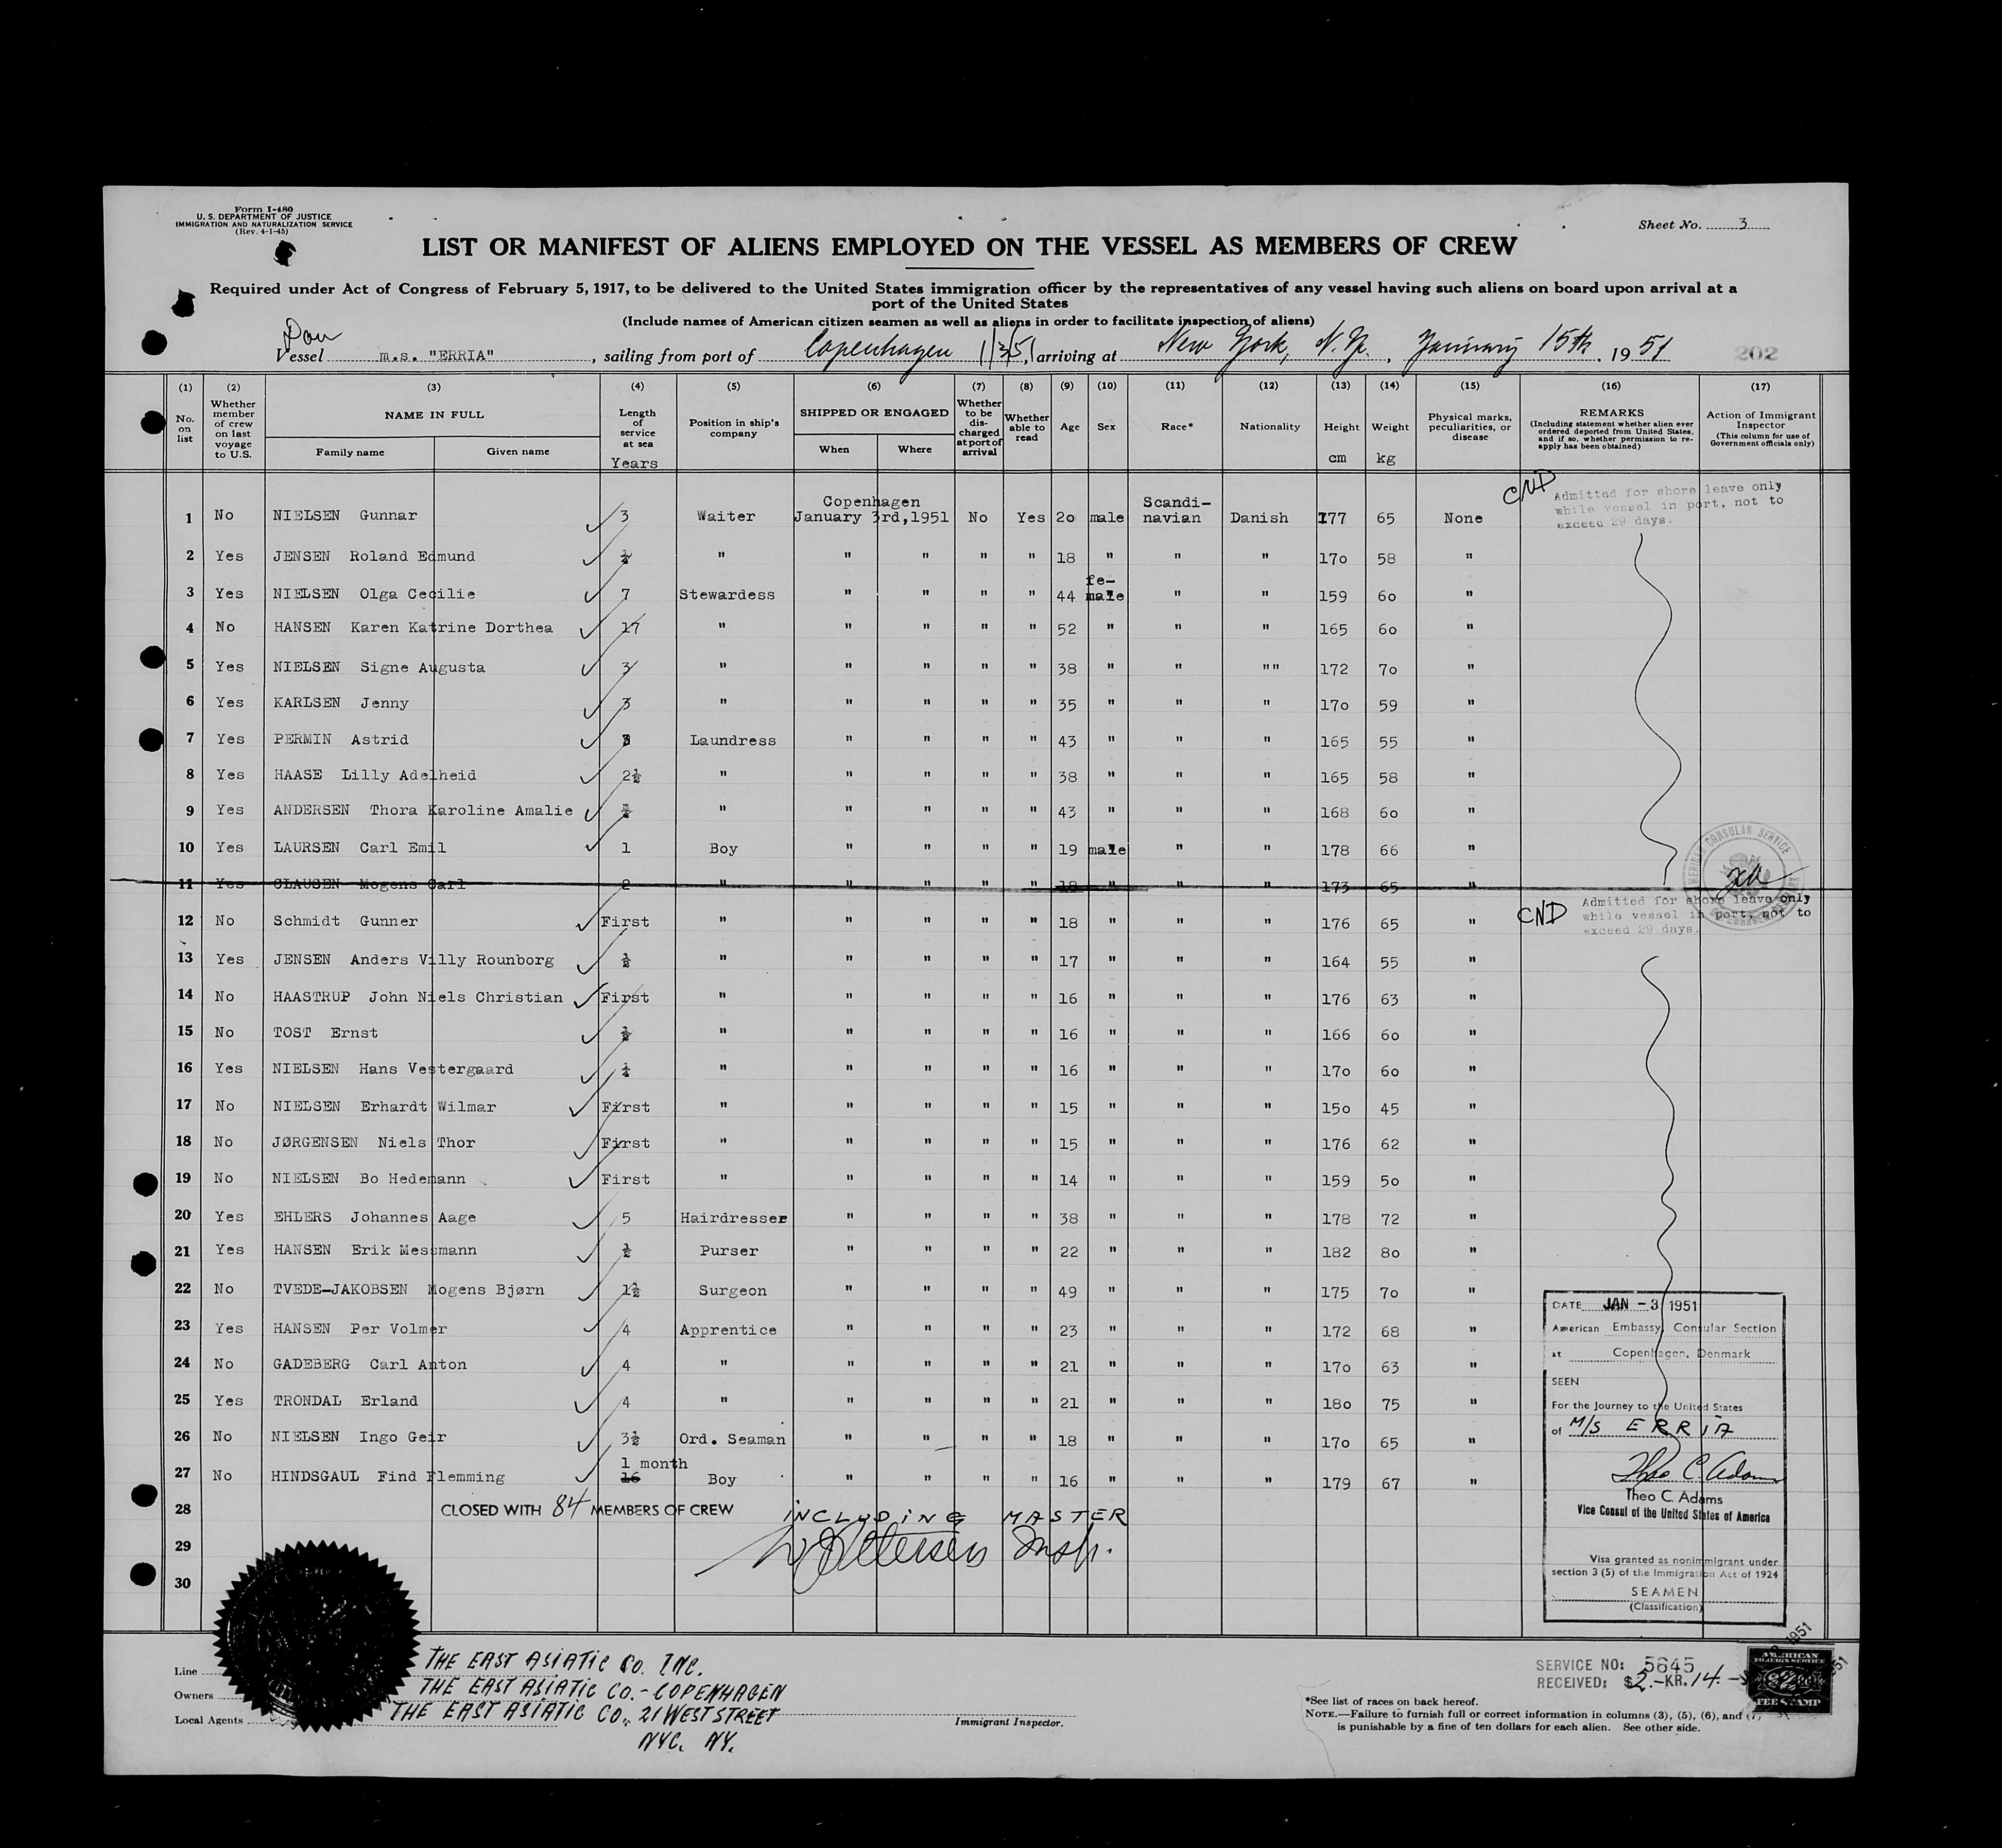 Form I-480
U. S. DEPARTMENT OF JUSTICE
IMMIGRATION AND NATURALIZATION SERVICE
(Rev. 4-1-45)
Sheet No. 3
LIST OR MANIFEST OF ALIENS EMPLOYED ON THE VESSEL AS MEMBERS OF CREW
Required under Act of Congress of February 5, 1917, to be delivered to the United States immigration officer by the representatives of any vessel having such aliens on board upon arrival at a
port of the United States
(Include names of American citizen seamen as well as aliens in order to facilitate inspection of aliens)
Dan
Vessel m.s. "ERRIA", sailing from port of Copenhagen 1/3/51, arriving at New York, N.Y., January 15th, 1951
202
(1) (2) (3) (4) (5) (6) (7) (8) (9) (10) (11) (12) (13) (14) (15) (16) (17)
No. on list
Whether member of crew on last voyage to U.S.
NAME IN FULL
Family name Given name
Length of service at sea
Years
Position in ship's company
SHIPPED OR ENGAGED
When Where
Whether to be discharged at port of arrival
Whether able to read
Age
Sex
Race*
Nationality
Height
cm
Weight
kg
Physical marks, peculiarities, or disease
REMARKS
(Including statement whether alien ever ordered deported from United States, and if so, whether permission to reapply has been obtained)
Action of Immigrant Inspector
(This column for use of Government officials only)
CND Admitted for shore leave only
while vessel in port, not to
exceed 29 days.
Copenhagen Scandi-
1 No NIELSEN Gunnar 3 Waiter January 3rd,1951 No Yes 20 male navian Danish 177 65 None
2 Yes JENSEN Roland Edmund " " " " " 18 " " " 170 58 "
fe-
3 Yes NIELSEN Olga Cecilie 7 Stewardess " " " " 44 male " " 159 60 "
4 No HANSEN Karen Katrine Dorthea 17 " " " " " 52 " " " 165 60 "
5 Yes NIELSEN Signe Augusta 3 " " " " " 38 " " "" 172 70 "
6 Yes KARLSEN Jenny 3 " " " " " 35 " " " 170 59 "
7 Yes PERMIN Astrid 3 Laundress " " " " 43 " " " 165 55 "
8 Yes HAASE Lilly Adelheid 2½ " " " " " 38 " " " 165 58 "
9 Yes ANDERSEN Thora Karoline Amalie " " " " " 43 " " " 168 60 "
10 Yes LAURSEN Carl Emil 1 Boy " " " " 19 male " " 178 66 "
11 Yes CLAUSEN Mogens Carl 2 " " " " " 18 " " " 173 65 "
AMERICAN CONSULAR SERVICE
CND Admitted for shore leave only
while vessel in port, not to
exceed 29 days.
12 No Schmidt Gunner First " " " " " 18 " " " 176 65 "
13 Yes JENSEN Anders Villy Rounborg ½ " " " " " 17 " " " 164 55 "
14 No HAASTRUP John Niels Christian First " " " " " 16 " " " 176 63 "
15 No TOST Ernst ½ " " " " " 16 " " " 166 60 "
16 Yes NIELSEN Hans Vestergaard " " " " " 16 " " " 170 60 "
17 No NIELSEN Erhardt Wilmar First " " " " " 15 " " " 150 45 "
18 No JØRGENSEN Niels Thor First " " " " " 15 " " " 176 62 "
19 No NIELSEN Bo Hedemann First " " " " " 14 " " " 159 50 "
20 Yes EHLERS Johannes Aage 5 Hairdresser " " " " 38 " " " 178 72 "
21 Yes HANSEN Erik Messmann ½ Purser " " " " 22 " " " 182 80 "
22 No TVEDE-JAKOBSEN Mogens Bjørn 1½ Surgeon " " " " 49 " " " 175 70 "
23 Yes HANSEN Per Volmer 4 Apprentice " " " " 23 " " " 172 68 "
24 No GADEBERG Carl Anton 4 " " " " " 21 " " " 170 63 "
25 Yes TRONDAL Erland 4 " " " " " 21 " " " 180 75 "
26 No NIELSEN Ingo Geir 3½ Ord. Seaman " " " " 18 " " " 170 65 "
1 month
27 No HINDSGAUL Find Flemming 16 Boy " " " " 16 " " " 179 67 "
28 CLOSED WITH 84 MEMBERS OF CREW INCLUDING MASTER
29 Insp.
30
DATE JAN -3 1951
American Embassy, Consular Section
at Copenhagen, Denmark
SEEN
For the Journey to the United States
of M/S ERRIA
Theo C. Adams
Theo C. Adams
Vice Consul of the United States of America
Visa granted as nonimmigrant under
section 3 (5) of the Immigration Act of 1924
SEAMEN
(Classification)
Line THE EAST ASIATIC CO. INC.
Owners THE EAST ASIATIC CO.-COPENHAGEN
Local Agents THE EAST ASIATIC CO., 21 WEST STREET
NYC. NY.
Immigrant Inspector.
SERVICE NO: 5645
RECEIVED: $2.-KR.14.-
AMERICAN
FOREIGN SERVICE
FEE STAMP
1951
*See list of races on back hereof.
NOTE.—Failure to furnish full or correct information in columns (3), (5), (6), and (7)
is punishable by a fine of ten dollars for each alien. See other side.